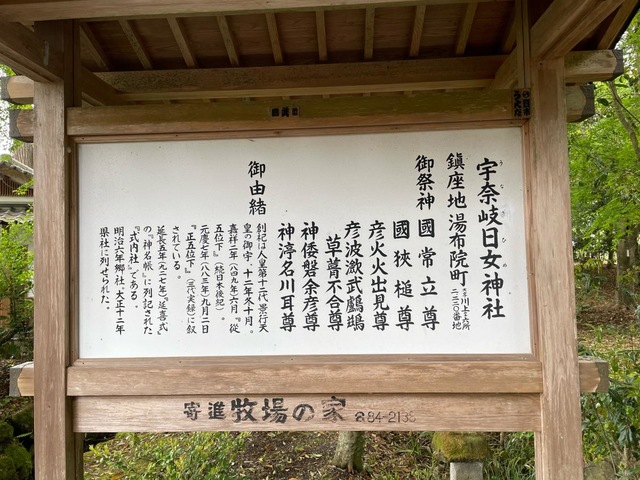 宇奈岐日女神社
うなぎひめ
鎮座地 湯布院町
大字川上六所
二、二二〇番地
御祭神 國常立尊
國狹槌尊
彦火火出見尊
彦波瀲武鸕鷀
草葺不合尊
神倭磐余彦尊
神渟名川耳尊
御由緒
創祀は人皇第十二代景行天
皇の御宇、十二年冬十月。
嘉祥二年(八四九年)六月『從
五位下』(続日本後紀)。
元慶七年(八八三年)九月二日
『正五位下』(三代実録)に叙
されている。
延長五年(九二七年)『延喜式』
の『神名帳』に列記された
『式内社』である。
明治六年郷社、大正十二年
県社に列せられた。
寄進 牧場の家 ☎84-2138